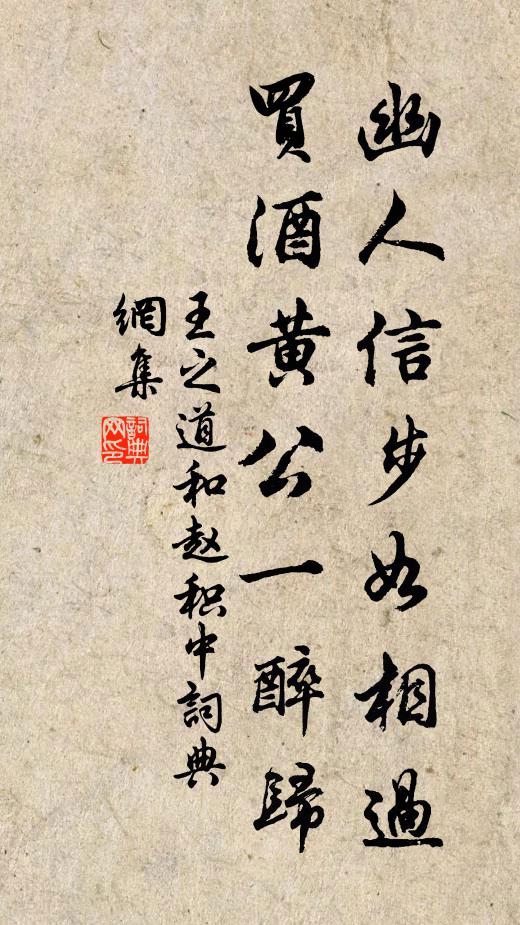 幽人信步如相過
買酒黄公一醉歸
王之道和赵积中詞典
網集
詞典
网印